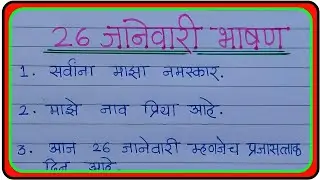 26 जानेवारी भाषण
1. सर्वांना माझा नमस्कार.
2. माझे नाव प्रिया आहे.
3. आज 26 जानेवारी म्हणजेच प्रजासत्ताक
दिन आहे.